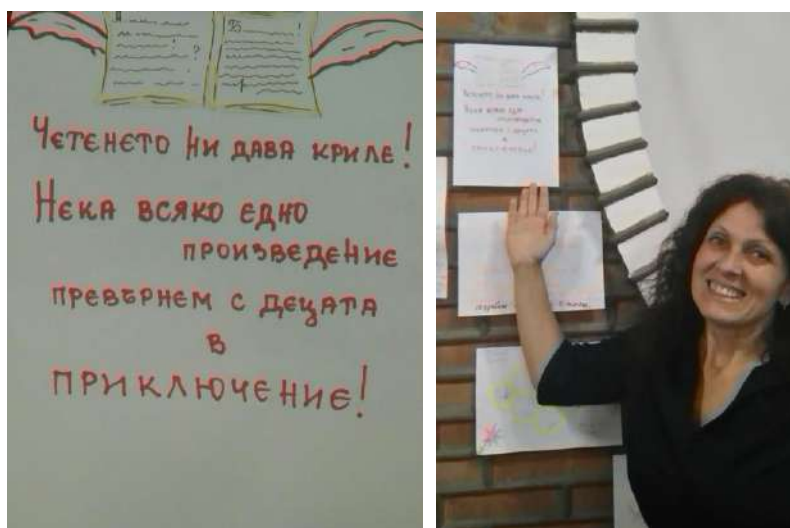 Четенето ни дава криле!
Нека всяко едно
произведение
превърнем с децата
в
приключение!